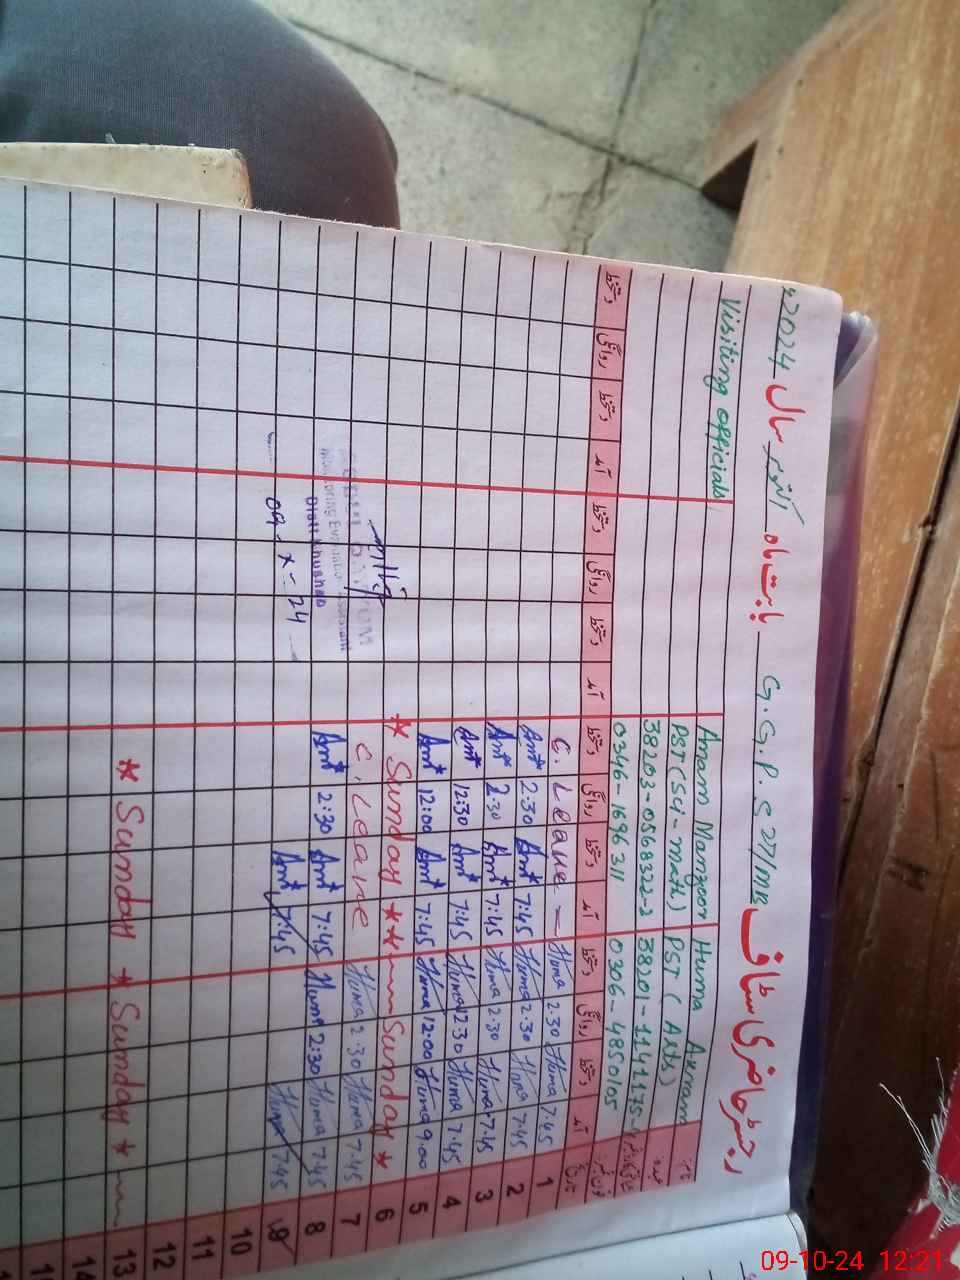 رجسٹر حاضری سٹاف G.G.P.S 27/MB بابت ماہ اکتوبر سال 2024ء
نام Huma Akram Anam Manzoor Visiting officials
عہدہ PST (Arts) PST (Sci-math)
38201-1141175-4 38203-0568322-2
0306-4850105 0346-1696311
تاریخ آمد دستخط روانگی دستخط آمد دستخط روانگی دستخط آمد دستخط روانگی دستخط آمد دستخط روانگی دستخط
1 7.45 Huma 2.30 Huma — C. Leave
2 7.45 Huma 2.30 Huma 7:45 Am* 2:30 Am*
3 7.45 Huma 2.30 Huma 7:45 Am* 2:30 Am*
4 7.45 Huma 12.30 Huma 7:45 Am* 12:30 Am*
5 9.00 Huma 12:00 Huma 7:45 Am* 12:00 Am*
6 * Sunday * * Sunday *
7 7.45 Huma 2.30 Huma C. Leave
8 7.45 Huma 2:30 Huma 7:45 Am* 2:30 Am*
9 7.45 Huma 7:45 Am* 09-X-24
10
11
12
13 * Sunday * Sunday *
14
15
09-10-24 12:21